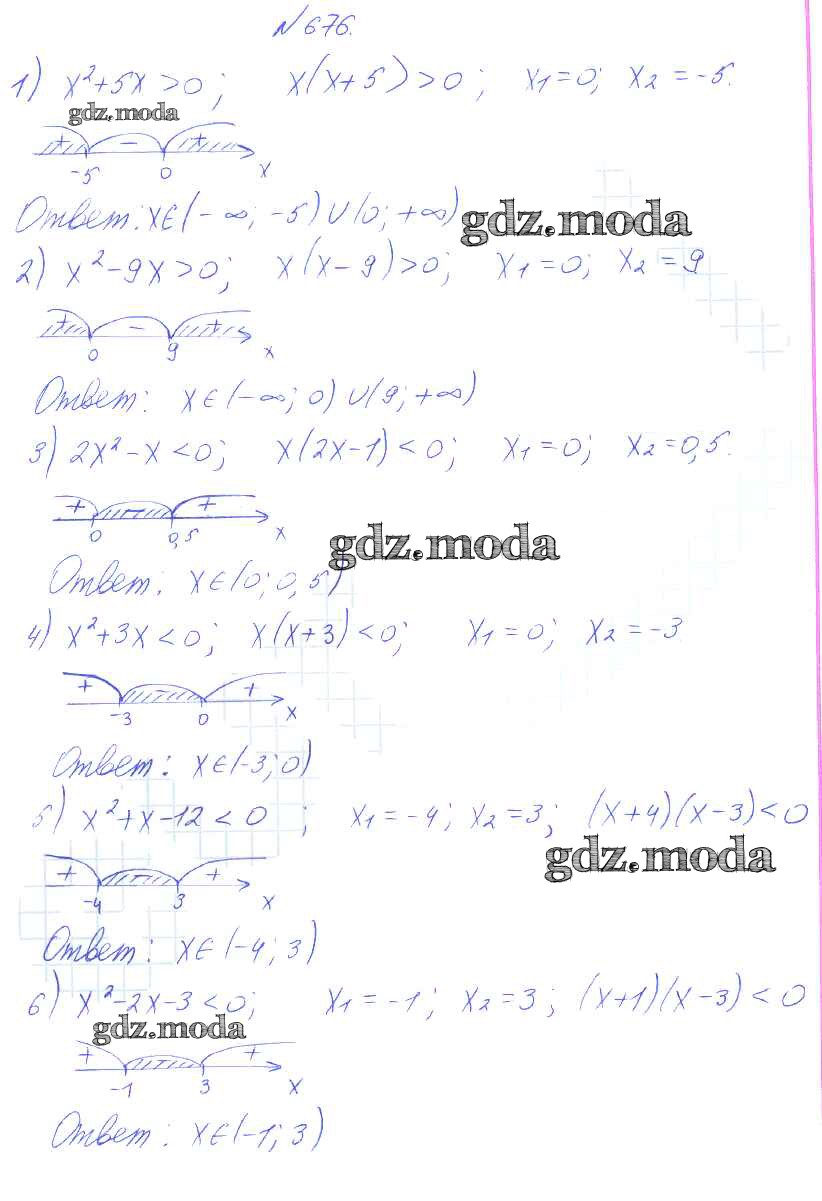 N 676.
1) x²+5x>0; x(x+5)>0; x₁=0; x₂=-5.
gdz.moda
+ − +
-5 0 x
Ответ: x∈(-∞; -5)∪(0; +∞)
gdz.moda
2) x²-9x>0; x(x-9)>0; x₁=0; x₂=9
+ − +
0 9 x
Ответ: x∈(-∞; 0)∪(9; +∞)
3) 2x²-x<0; x(2x-1)<0; x₁=0; x₂=0,5.
+ − +
0 0,5 x
gdz.moda
Ответ: x∈(0; 0,5)
4) x²+3x<0; x(x+3)<0; x₁=0; x₂=-3
+ − +
-3 0 x
Ответ: x∈(-3; 0)
5) x²+x-12<0; x₁=-4; x₂=3; (x+4)(x-3)<0
gdz.moda
+ − +
-4 3 x
Ответ: x∈(-4; 3)
6) x²-2x-3<0; x₁=-1; x₂=3; (x+1)(x-3)<0
gdz.moda
+ − +
-1 3 x
Ответ: x∈(-1; 3)